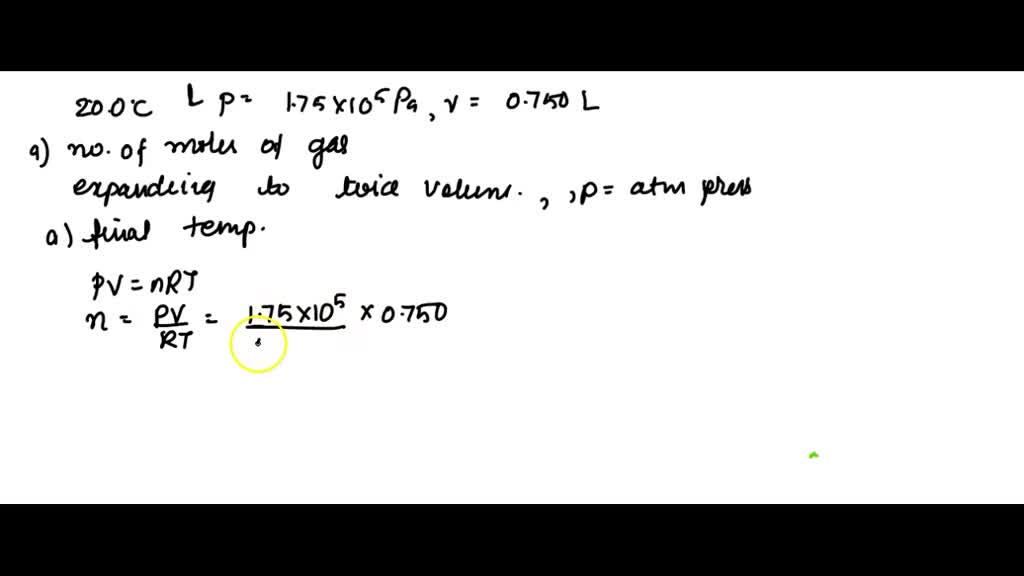 20.0°C L p = 1.75×10⁵ Pa, v = 0.750 L
a) no. of moles of gas
expanding to twice volume. , , p = atm press
a) final temp.
PV = nRT
n = PV/RT = 1.75×10⁵ × 0.750